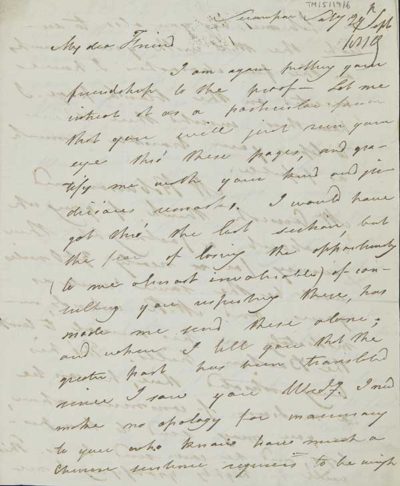 TM1511916
My dear Friend
I am again putting your
friendship to the proof – Let me
intreat it as a particular favor
that you will just run your
eye thro' these pages, and gra-
tify me with your kind and ju-
dicious remarks. I would have
got thro' the last section, but
the fear of losing the opportunity
(to me almost invaluable) of con-
sulting you respecting these, has
made me send these alone;
and when I tell you that the
greater part has been translated
since I saw you I need
make no apology for inaccuracy
to you who know how much a
Chinese sentence requires to be weigh